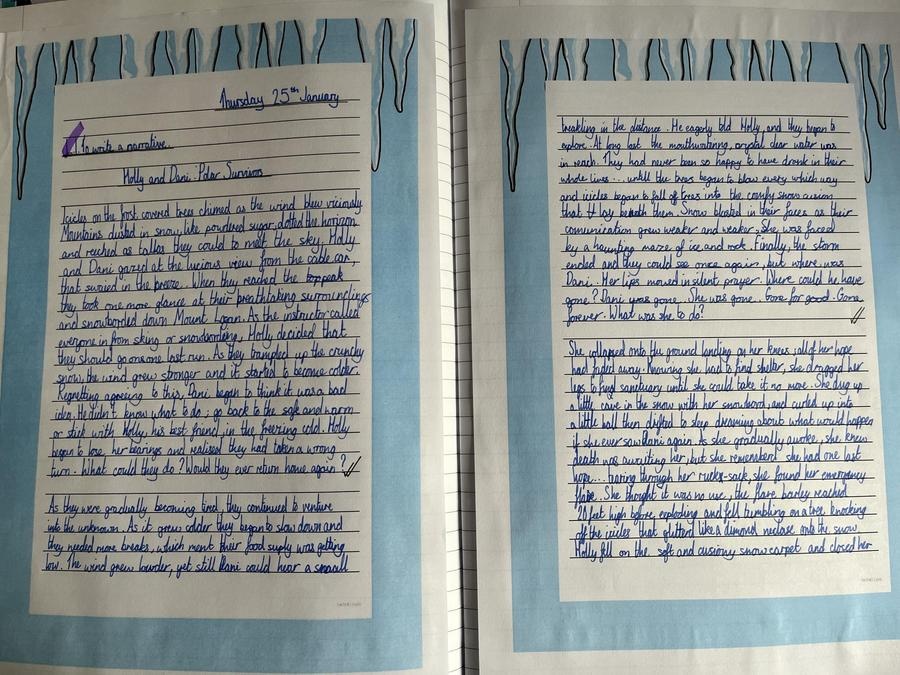 Thursday 25th January
To write a narrative.
Holly and Dani: Polar Survivors
Icicles on the fost covered trees chimed as the wind blew viciously.
Mountains dusted in snow, like powdered sugar, dotted the horizon
and reached as tall as they could to meet the sky. Holly
and Dani gazed at the lucious view from the cable car,
that swayed in the breeze. When they reached the
they took one more glance at their breathtaking surroundings
and snowborded down Mount Logan. As the instructor called
everyone in from skiing or snowbording, Holly decided that
they should go on one last run. As they trampled up the crunchy
snow, the wind grew stronger and it started to become colder.
Regretting agreeing to this, Dani began to think it was a bad
idea. He didn't know what to do; go back to the safe and warm
or stick with Holly, his best friend, in the freezing cold. Holly
began to lose her bearings and realised they had taken a wrong
turn. What could they do? Would they ever return home again?
As they were gradually becoming tired, they continued to venture
into the unknown. As it grew colder they began to slow down and
they needed more breaks, which ment their food suply was getting
low. The wind grew lowder, yet still Dani could hear a small
in the distance. He eagerly told Holly, and they began to
explore. At long last the mouthwatering, crystal clear water was
in reach. They had never been so happy to have drank in their
whole lives... untill the trees began to blow every which way
and icicles began to fall of trees into the comfy snow cusion
that lay beneath them. Snow blasted in their faces as their
comunication grew weaker and weaker. She was faced
by a haunting maze of ice and rock. Finally, the storm
ended and they could see once again, but where was
Dani. Her lips moved in silent prayer. Where could he have
gone? Dani was gone. She was gone. Gone for good. Gone
forever. What was she to do?
She collapsed onto the ground landing on her knees; all of her hope
had faded away. Knowing she had to find shelter, she dragged her
legs to find sanctuary until she could take it no more. She dug up
a little cave in the snow with her snowbord, and curled up into
a little ball then drifted to sleep dreaming about what would happen
if she ever saw Dani again. As she gradually awoke, she knew
death was awaiting her, but she remembered she had one last
hope... through her ruck-sack, she found her emergency
flare. She thought it was no use, the flare barley reached
20 feet high before exploding and fell trembling on a tree knocking
off the icicles that like a dimond neclase onto the snow.
Holly fell on the soft and cusiony snow carpet and closed her